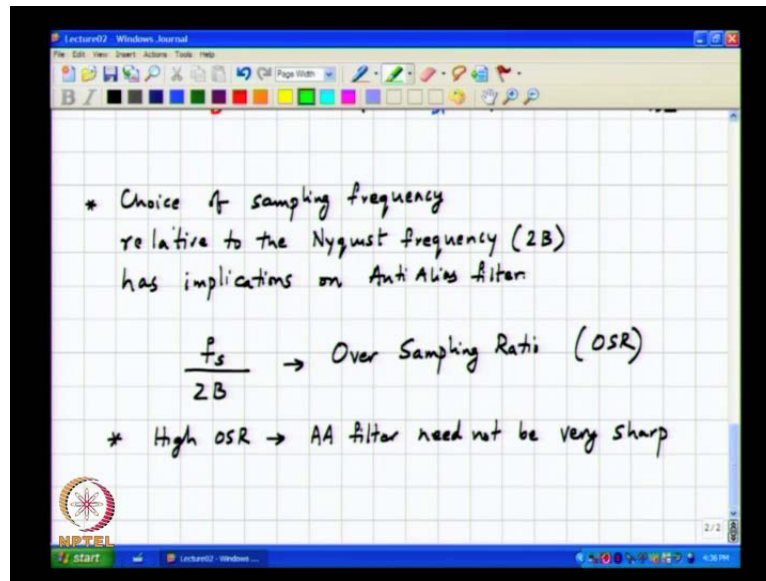 Lecture02 - Windows Journal
File Edit View Insert Actions Tools Help
Page Width
B I
* Choice of sampling frequency
relative to the Nyquist frequency (2B)
has implications on Anti Alias filter.
fs
2B
→ Over Sampling Ratio (OSR)
* High OSR → AA filter need not be very sharp
NPTEL
2/2
start
Lecture02 - Windows ...
4:36 PM